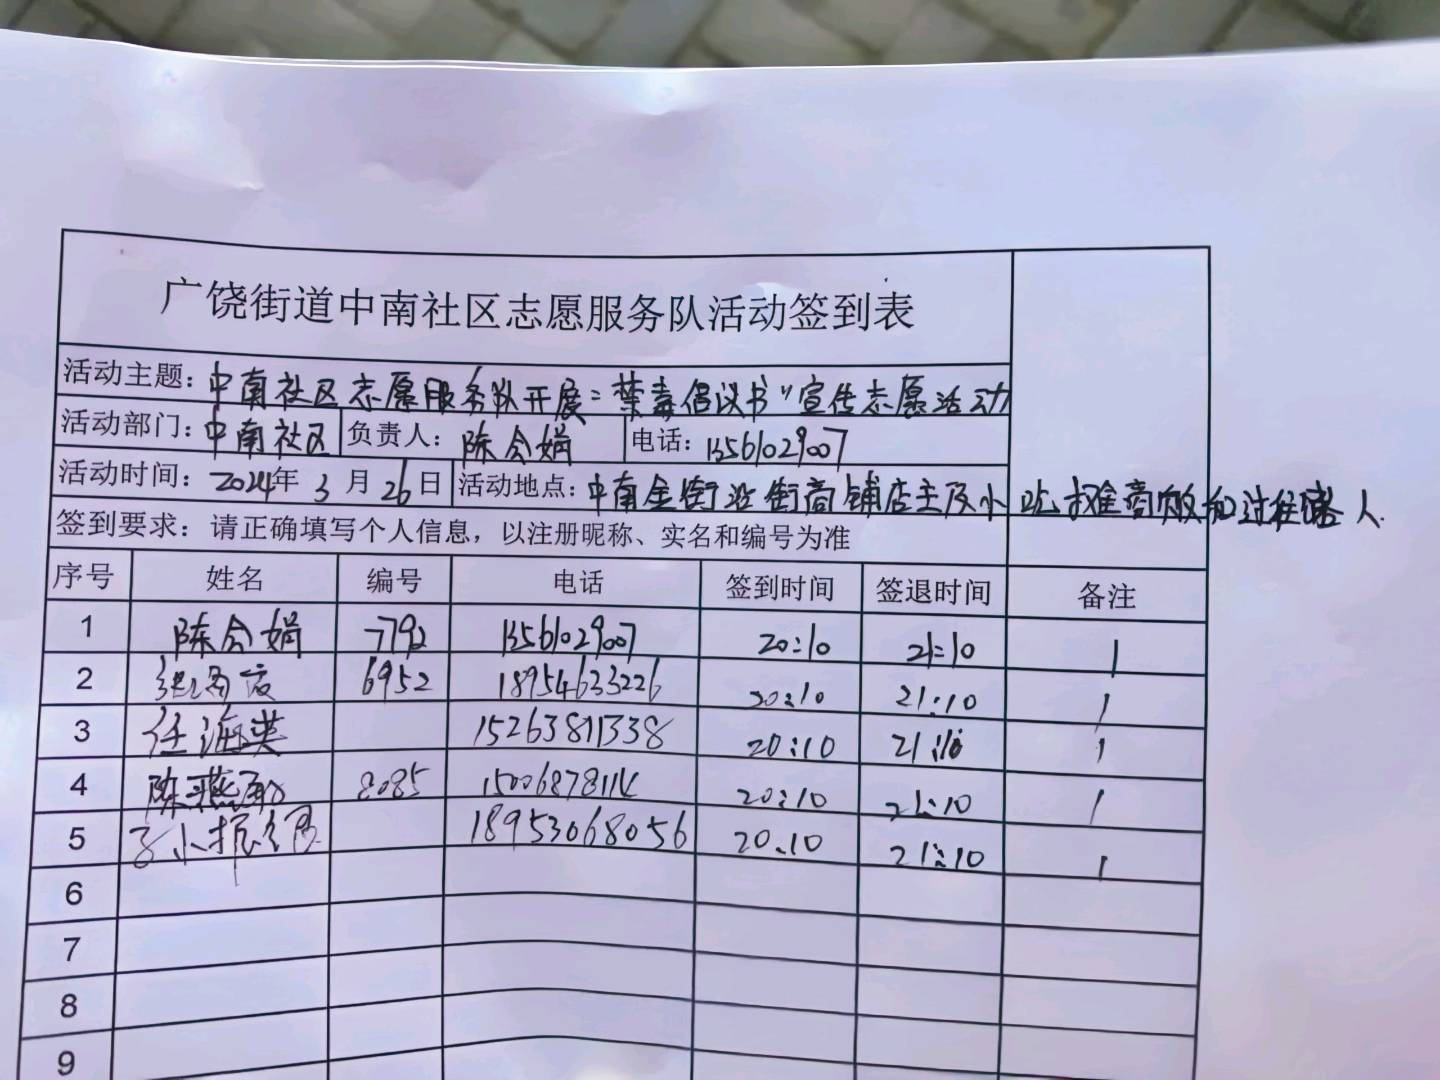 广饶街道中南社区志愿服务队活动签到表
活动主题：中南社区志愿服务队开展"禁毒倡议书"宣传志愿活动
活动部门：中南社区 负责人：陈会娟 电话：13561029007
活动时间：2024年 3 月 26 日 活动地点：中南金街沿街商铺店主及小吃摊商贩和过往路人.
签到要求：请正确填写个人信息，以注册昵称、实名和编号为准
序号 姓名 编号 电话 签到时间 签退时间 备注
1 陈会娟 7792 13561029007 20:10 21:10 1
2 6952 18954633226 20:10 21:10 1
3 任海英 15263871338 20:10 21:10 1
4 陈燕 8085 15006878114 20:10 21:10 1
5 18953068056 20:10 21:10 1
6
7
8
9